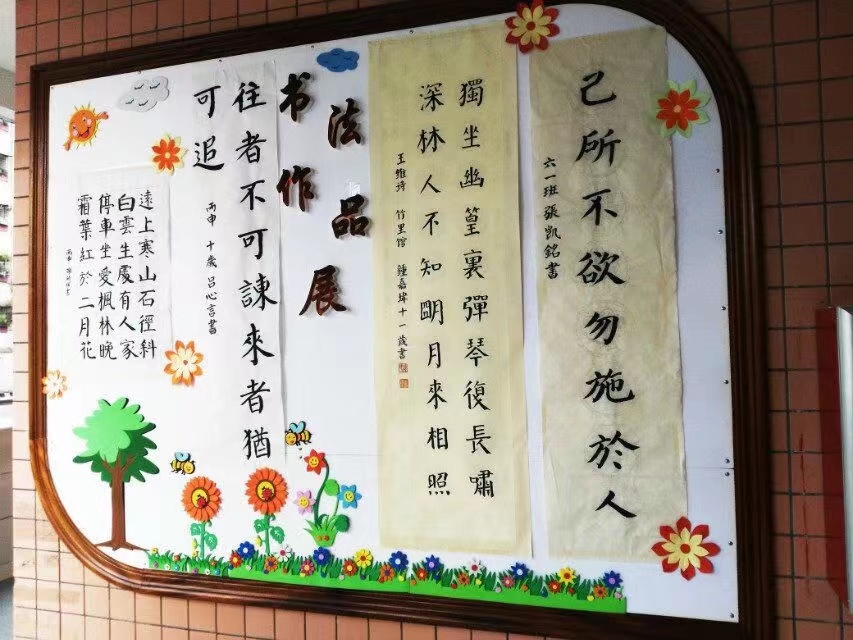 己所不欲勿施於人
六一班張凱銘書
獨坐幽篁裏彈琴復長嘯
深林人不知朙月來相照
王維詩 竹里馆 鍾嘉瑋十一歲書
书法作品展
往者不可諫來者猶
可追
丙申 十歲 呂心言書
遠上寒山石徑斜
白雲生處有人家
停車坐愛楓林晚
霜葉紅於二月花
丙申